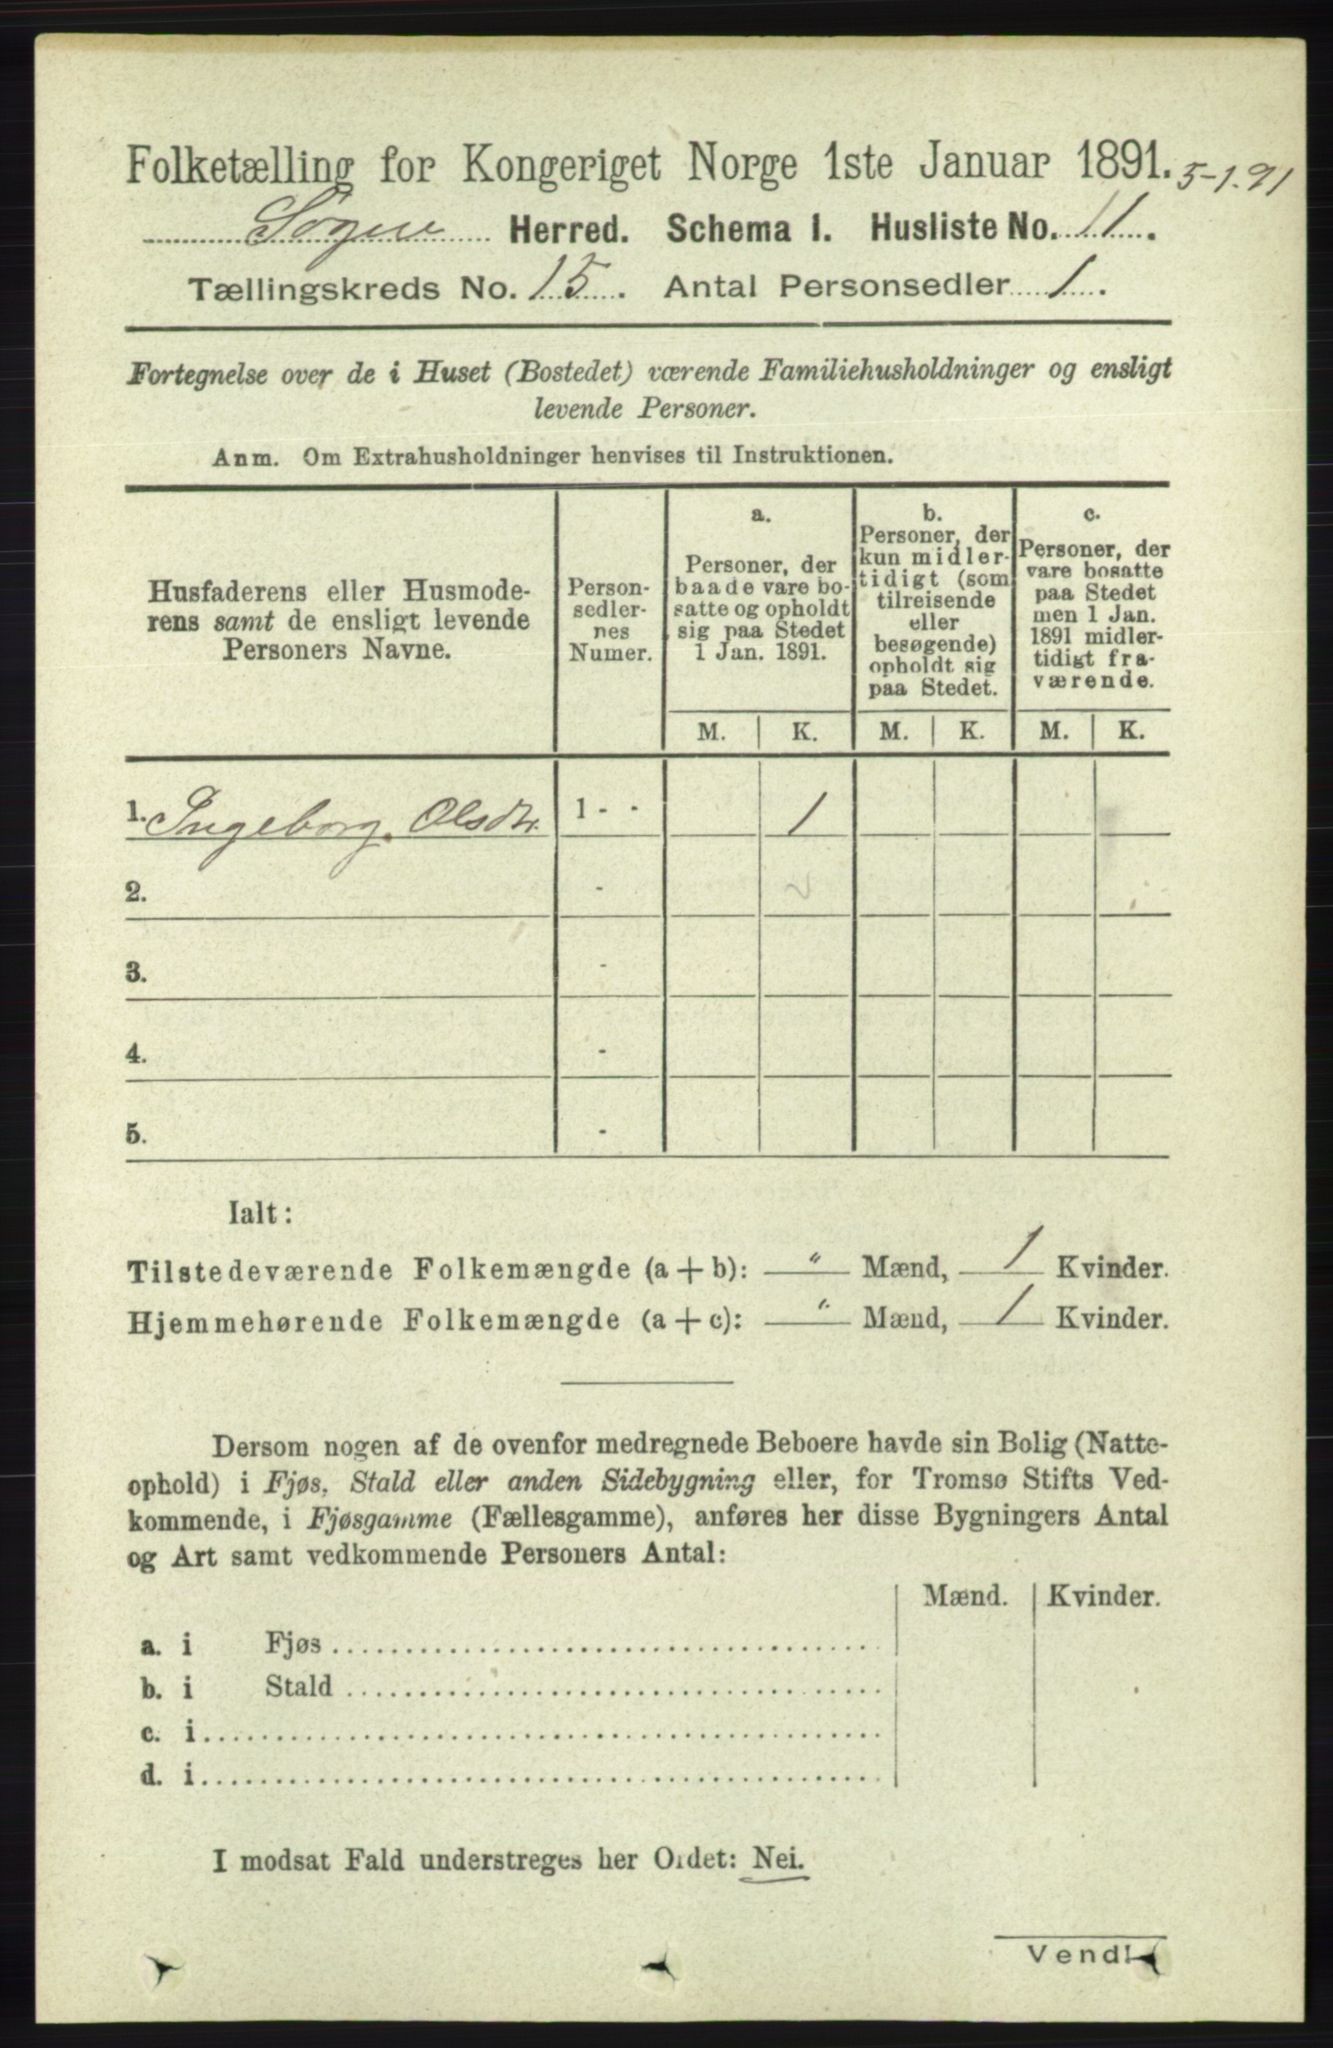 Folketælling for Kongeriget Norge 1ste Januar 1891. 5-1.91
Søgne Herred. Schema I. Husliste No. 11.
Tællingskreds No. 15. Antal Personsedler 1.
Fortegnelse over de i Huset (Bostedet) værende Familiehusholdninger og ensligt
levende Personer.
Anm. Om Extrahusholdninger henvises til Instruktionen.
Husfaderens eller Husmode-
rens samt de ensligt levende
Personers Navne.
Person-
sedler-
nes
Numer.
a.
Personer, der
baade vare bo-
satte og opholdt
sig paa Stedet
1 Jan. 1891.
b.
Personer, der
kun midler-
tidigt (som
tilreisende
eller
besøgende)
opholdt sig
paa Stedet.
c.
Personer, der
vare bosatte
paa Stedet
men 1 Jan.
1891 midler-
tidigt fra-
værende.
M. K. M. K. M. K.
1. Ingeborg Olsdtr. 1 - - 1
2. -
3. -
4. -
5. -
Ialt:
Tilstedeværende Folkemængde (a + b): " Mænd, 1 Kvinder.
Hjemmehørende Folkemængde (a + c): " Mænd, 1 Kvinder.
Dersom nogen af de ovenfor medregnede Beboere havde sin Bolig (Natte-
ophold) i Fjøs, Stald eller anden Sidebygning eller, for Tromsø Stifts Ved-
kommende, i Fjøsgamme (Fællesgamme), anføres her disse Bygningers Antal
og Art samt vedkommende Personers Antal:
Mænd. Kvinder.
a. i Fjøs
b. i Stald
c. i
d. i
I modsat Fald understreges her Ordet: Nei.
Vend!